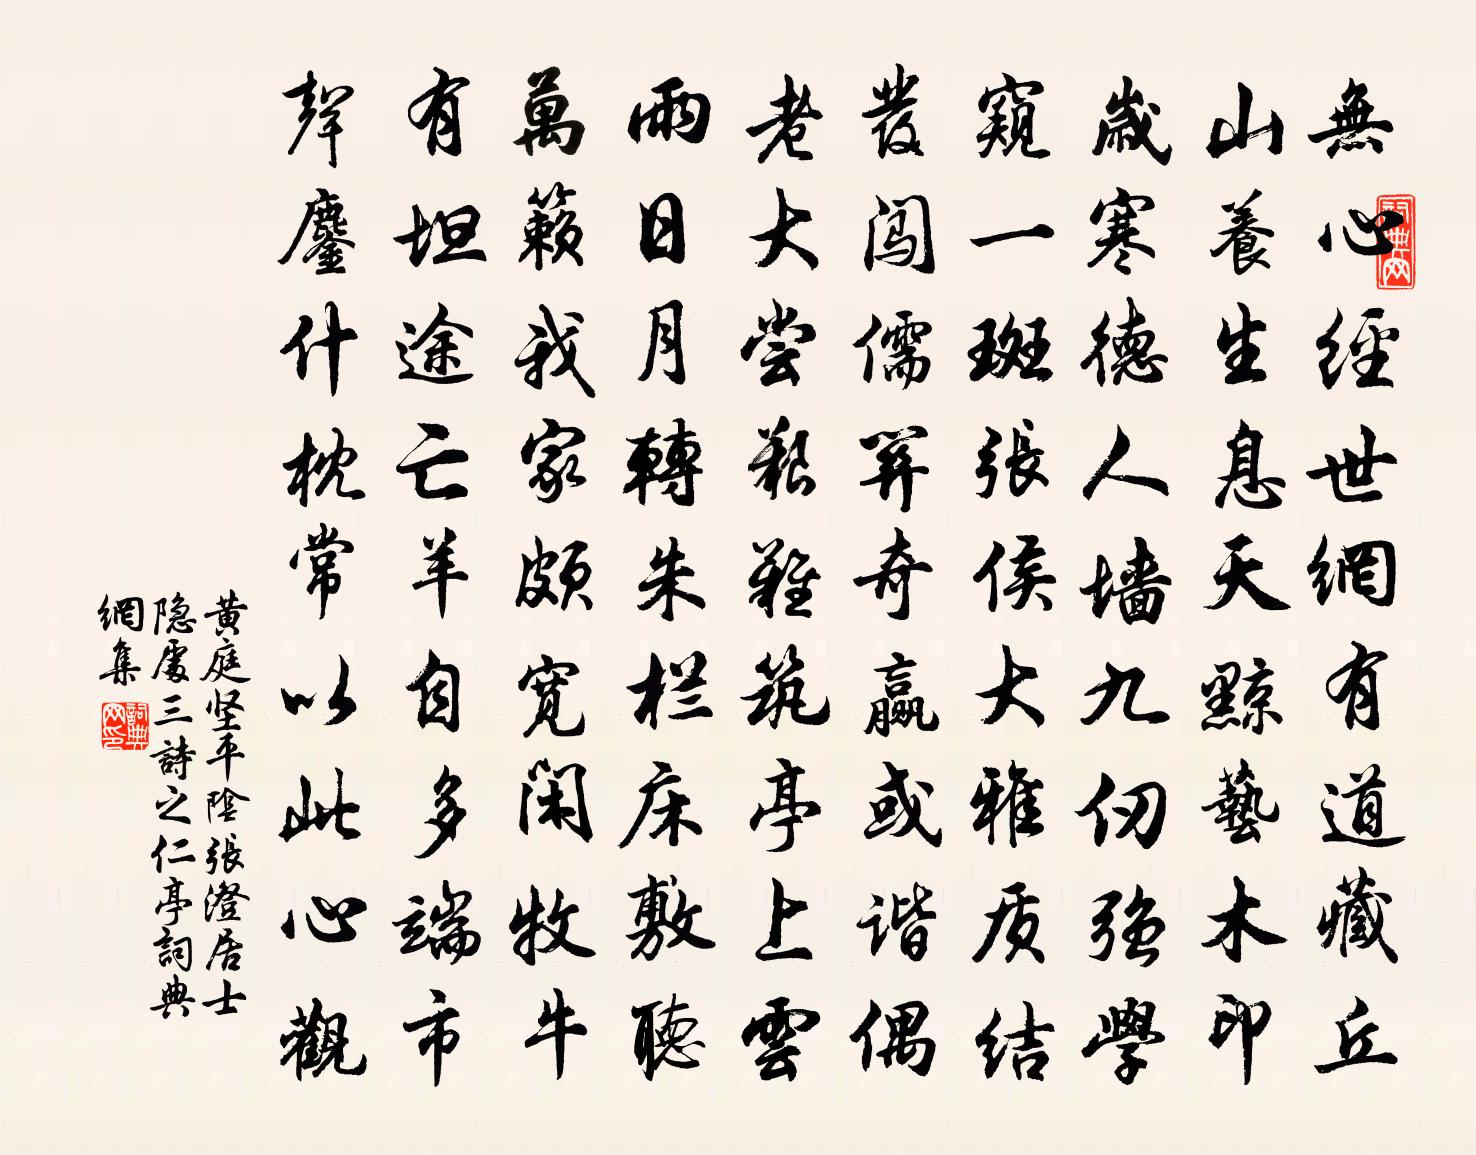 無心經世網有道藏丘
山養生息天黥藝木印
歲寒德人墙九仞強學
窺一斑張侯大雅质结
發闯儒關奇贏或谐偶
老大尝艱難筑亭上雲
雨日月轉朱栏床敷聽
萬籟我家頗寬闲牧牛
有坦途亡羊自多端市
聲鏖什枕常以此心觀
黄庭坚平陰張澄居士
隐處三詩之仁亭詞典
網集
詞典网
詞典网印